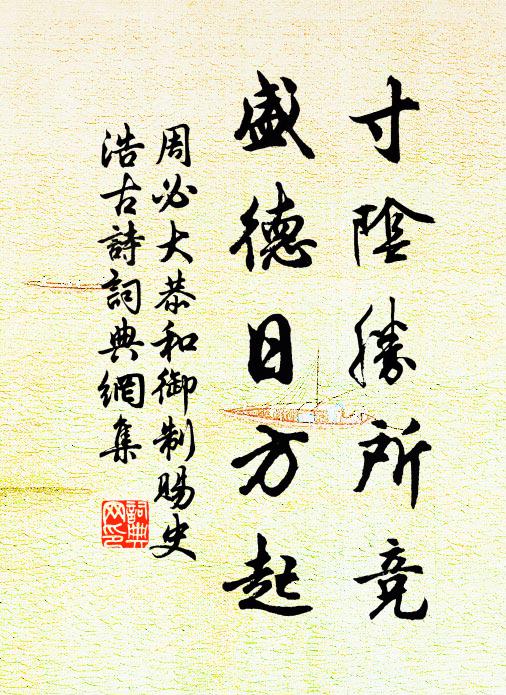 寸陰勝所競
盛德日方起
周必大恭和御制賜史
浩古詩詞典網集
詞典
网印